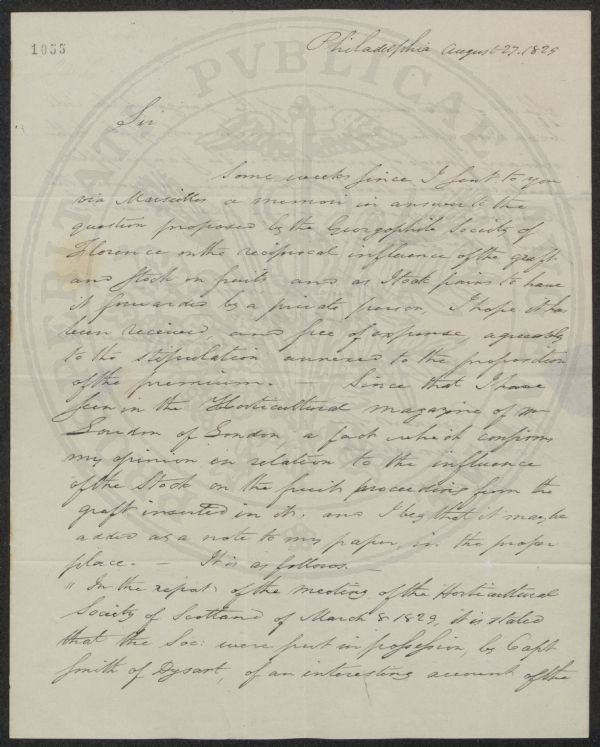 1055
Philadelphia August 27. 1829
Sir
Some weeks since I sent to you
via Marseilles a memoir in answer to the
question proposed by the Georgophile Society of
Florence on the reciprocal influence of the graft
and stock on fruits and as I took pains to have
it forwarded by a private person, I hope it has
been received, and free of expense, agreeably
to the stipulation annexed to the proposition
of the premium. — Since that I have
seen in the Horticultural magazine of Mr
Loudon of London, a fact which confirms
my opinion in relation to the influence
of the Stock on the fruit proceeding from the
graft inserted in it, and I beg that it may be
added as a note to my paper in the proper
place. — It is as follows. —
" In the report of the meeting of the Horticultural
Society of Scotland of March 8 1829, it is stated
that the Soc: were put in possession, by Capt
Smith of Dysart, of an interesting account of the